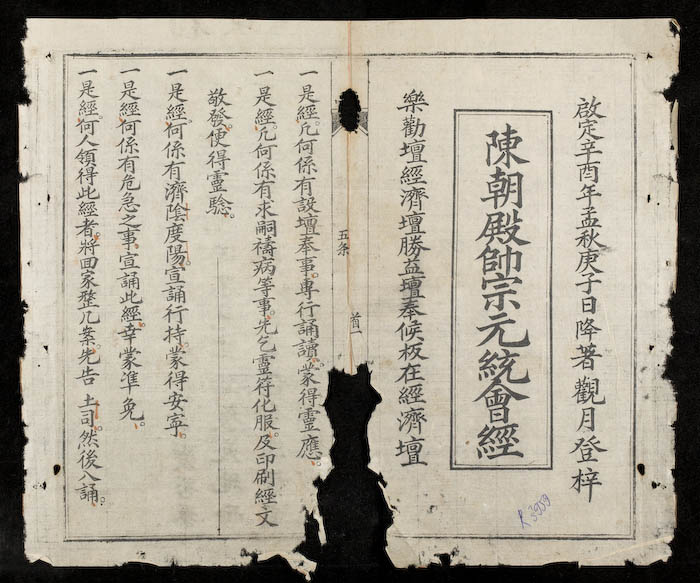 啟定辛酉年孟秋庚子日降著觀月登梓
陳朝殿帥宗元統會經
樂勸壇經濟壇勝益壇奉候板在經濟壇
R.3959
五条
首一
一是經凡何係有設壇奉事專行誦讀蒙得靈應
一是經凡何係有求嗣禱病等事先乞靈符化服及印刷經文
敬發便得靈驗
一是經何係有濟陰度陽宣誦行持蒙得安寕
一是經何係有危急之事宣誦此經幸蒙準免
一是經何人領得此經者將回家整几案先告 土司然後入誦